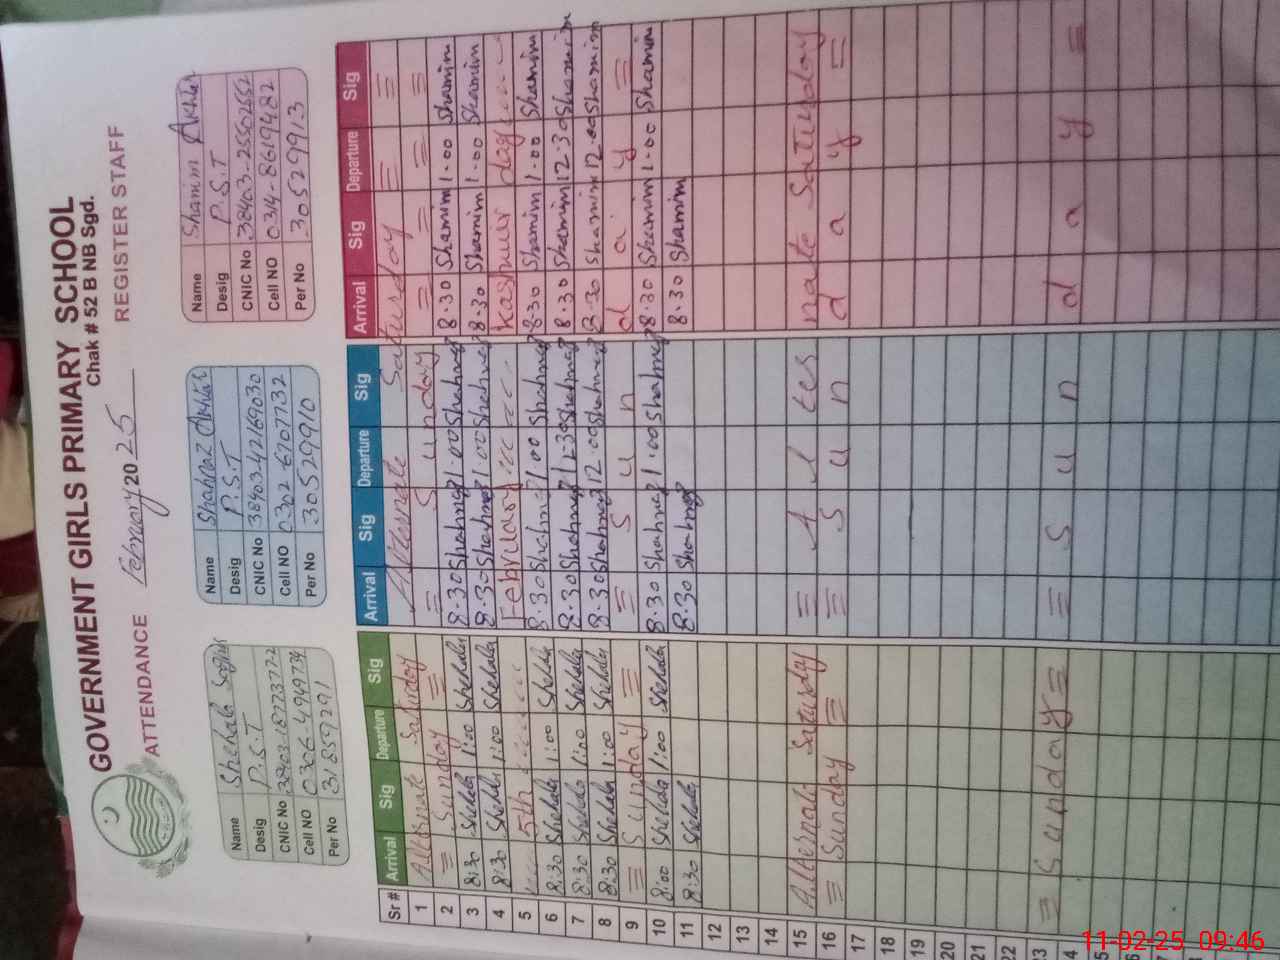 GOVERNMENT GIRLS PRIMARY SCHOOL
Chak # 52 B NB Sgd.
ATTENDANCE February 2025 REGISTER STAFF
Name Shehala
Desig P.S.T
CNIC No 38403-1877377-2
Cell NO 0306-4949734
Per No 31859291
Name Shahnaz Akhtar
Desig P.S.T
CNIC No 38403-42169030
Cell NO 0302-6707732
Per No 30529910
Name Shamim Akhtar
Desig P.S.T
CNIC No 38403-25502652
Cell NO 0314-8619482
Per No 30529913
Sr # Arrival Sig Departure Sig Arrival Sig Departure Sig Arrival Sig Departure Sig
1 Alternate Saturday Alternate Saturday
2 = Sunday = = Sunday = = = =
3 8:30 Shehala 1:00 Shehala 8.30 Shahnaz 1.00 Shahnaz 8.30 Shamim 1.00 Shamim
4 8:30 Shehala 1:00 Shehala 8.30 Shahnaz 1.00 Shahnaz 8.30 Shamim 1.00 Shamim
5 5th February Kashmir day
6 8:30 Shehala 1:00 Shehala 8.30 Shahnaz 1.00 Shahnaz 8.30 Shamim 1.00 Shamim
7 8:30 Shehala 1:00 Shehala 8.30 Shahnaz 12.30 Shahnaz 8.30 Shamim 12.30 Shamim
8 8:30 Shehala 1:00 Shehala 8.30 Shahnaz 12.00 Shahnaz 8.30 Shamim 12.00 Shamim
9 = Sunday = = Sunday =
10 8:00 Shehala 1:00 Shehala 8.30 Shahnaz 1.00 Shahnaz 8.30 Shamim 1.00 Shamim
11 8:30 Shehala 8.30 Shahnaz 8.30 Shamim
12
13
14
15 Alternate Saturday = Alternate Saturday
16 = Sunday = = Sunday =
17
18
19
20
21
22
23 = Sunday = = Sunday =
11-02-25 09:46